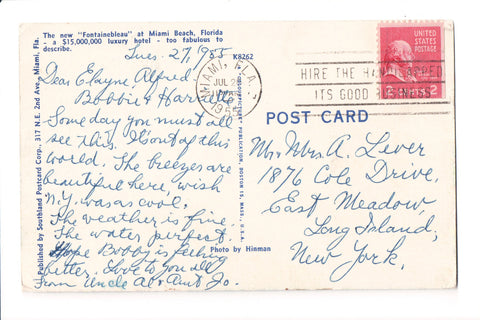 The new "Fontainebleau" at Miami Beach, Florida
- a $15,000,000 luxury hotel - too fabulous to
describe.
K8262
Tues. 27, 1955
Dear Elayne, Alfred,
Bobbie & Harriette
Some day you must all
see this. It's out of this
World. The breezes are
beautiful here, wish
N.Y. was as cool.
The weather is fine.
The water perfect.
Hope Bobby is feeling
better. Love to you all
From Uncle Al & Aunt Jo.
Published by Southland Postcard Corp., 317 N.E. 2nd Ave., Miami, Fla.
PRODUCTION, BOSTON 15, MASS., U.S.A.
Photo by Hinman
MIAMI, FLA.
JUL 2
PM
1955
HIRE THE HANDICAPPED
ITS GOOD BUSINESS
UNITED
STATES
POSTAGE
2
POST CARD
Mr. Mrs. A. Lever
1876 Cole Drive,
East Meadow,
Long Island,
New York,